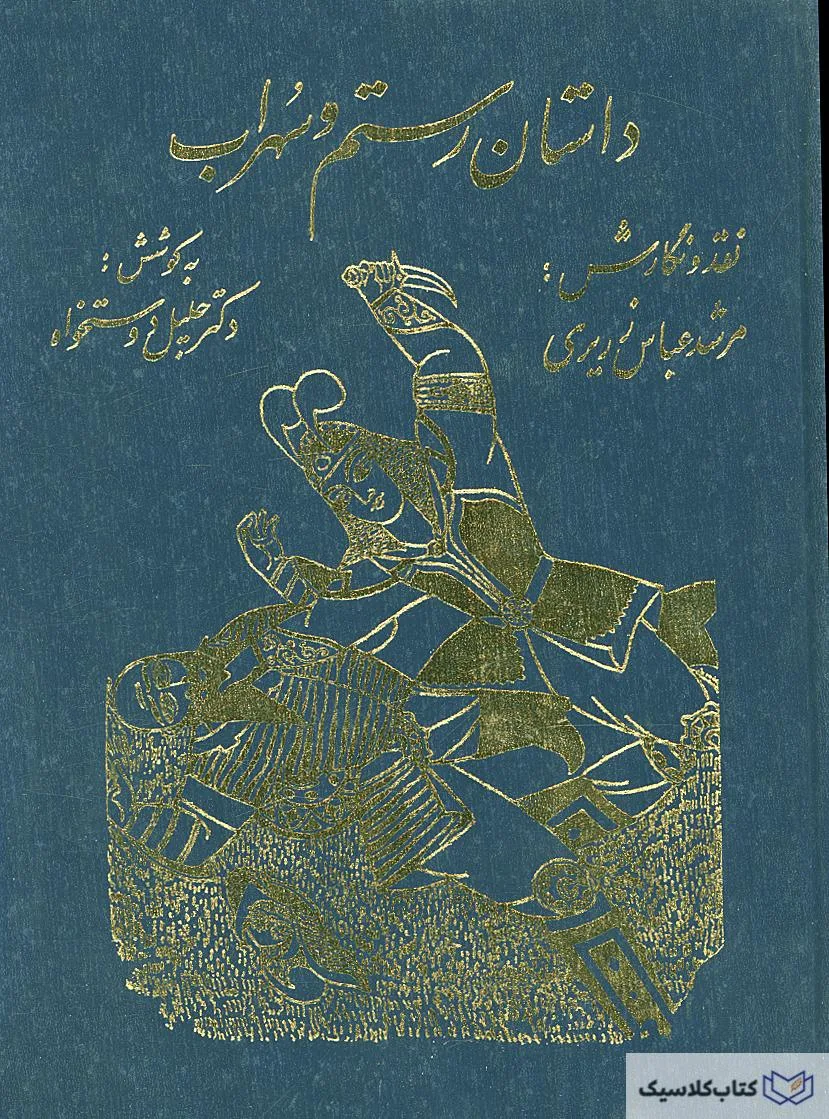 داستان رستم و سهراب
نقد و نگارش :
مرشد عباس زریری
به کوشش :
دکتر جلیل دوستخواه
کتاب کلاسیک